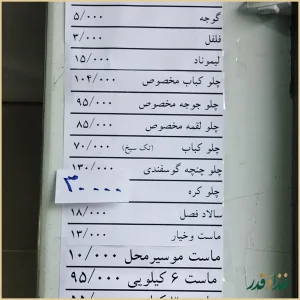 گوجه ۵/۰۰۰
فلفل ۳/۰۰۰
لیموناد ۱۵/۰۰۰
چلو کباب مخصوص ۱۰۴/۰۰۰
چلو جوجه مخصوص ۹۵/۰۰۰
چلو لقمه مخصوص ۸۵/۰۰۰
چلو کباب (تک سیخ) ۷۰/۰۰۰
چلو چنجه گوسفندی ۱۳۰/۰۰۰
چلو کره ۳۰۰۰۰
سالاد فصل ۱۸/۰۰۰
ماست وخیار ۱۳/۰۰۰
ماست موسیرمحل ۱۰/۰۰۰
ماست ۶ کیلویی ۹۵/۰۰۰